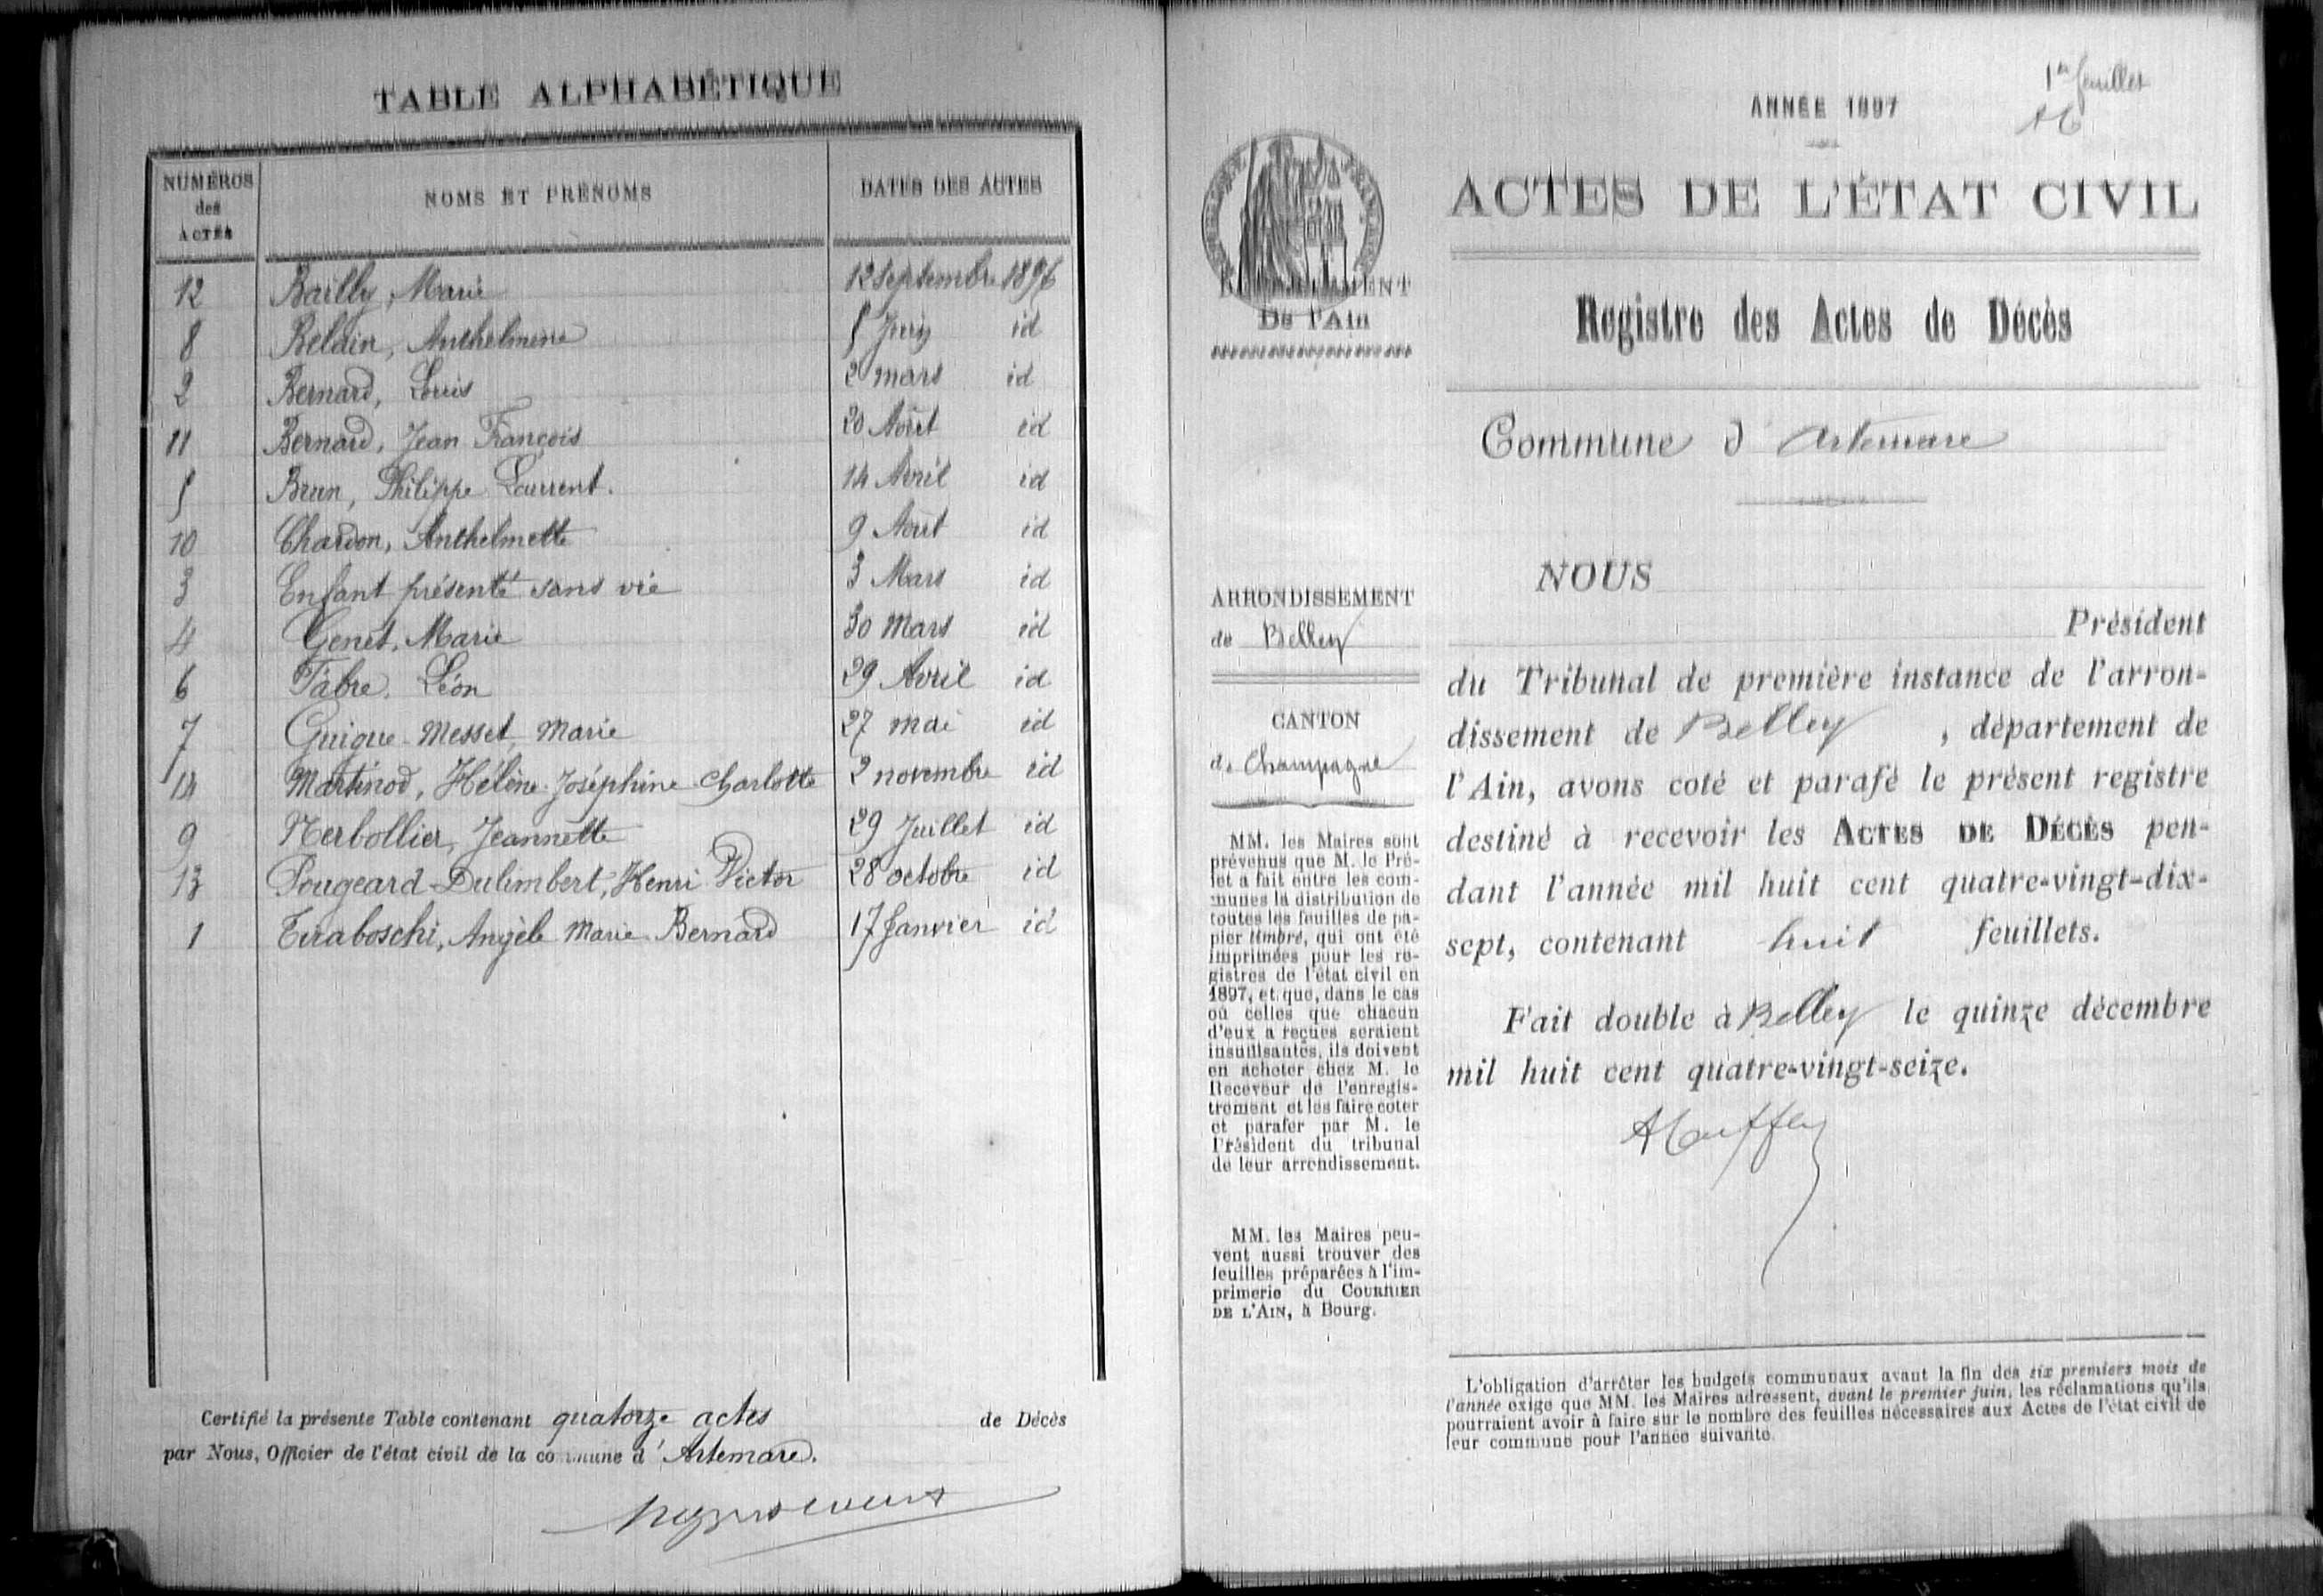 TABLE ALPHABÉTIQUE
NUMÉROS des ACTES NOMS ET PRÉNOMS DATES DES ACTES
12 Bailly, Marie 12 Septembre 1896
8 Belain, Anthelmine 5 Juin id
2 Bernard, Louis 2 mars id
11 Bernard, Jean François 20 Août id
5 Brun, Philippe Laurent. 14 Avril id
10 Chardon, Anthelmette 9 Août id
3 Enfant présenté sans vie 3 Mars id
4 Genet, Marie 30 Mars id
6 Fabre, Léon 29 Avril id
7 Guigue-Messet, Marie 27 mai id
14 Martinod, Hélène Joséphine Charlotte 2 novembre id
9 Nerbollier, Jeannette 29 Juillet id
13 Pougeard-Dulimbert, Henri Victor 28 octobre id
1 Tiraboschi, Angèle Marie Bernard 17 Janvier id
Certifié la présente Table contenant quatorze actes de Décès
par Nous, Officier de l'état civil de la commune d'Artemare.
1er feuillet
ANNÉE 1897
ACTES DE L'ÉTAT CIVIL
DÉPARTEMENT
De l'Ain
Registre des Actes de Décès
Commune d'Artemare
ARRONDISSEMENT
de Belley
CANTON
de Champagne
MM. les Maires sont
prévenus que M. le Pré-
fet a fait entre les com-
munes la distribution de
toutes les feuilles de pa-
pier timbré, qui ont été
imprimées pour les re-
gistres de l'état civil en
1897, et que, dans le cas
où celles que chacun
d'eux a reçues seraient
insuffisantes, ils doivent
en acheter chez M. le
Receveur de l'enregis-
trement et les faire coter
et parafer par M. le
Président du tribunal
de leur arrondissement.
MM. les Maires peu-
vent aussi trouver des
feuilles préparées à l'im-
primerie du COURRIER
DE L'AIN, à Bourg.
NOUS
Président
du Tribunal de première instance de l'arron-
dissement de Belley, département de
l'Ain, avons coté et parafé le présent registre
destiné à recevoir les ACTES DE DÉCÈS pen-
dant l'année mil huit cent quatre-vingt-dix-
sept, contenant huit feuillets.
Fait double à Belley le quinze décembre
mil huit cent quatre-vingt-seize.
L'obligation d'arrêter les budgets communaux avant la fin des six premiers mois de
l'année exige que MM. les Maires adressent, avant le premier juin, les réclamations qu'ils
pourraient avoir à faire sur le nombre des feuilles nécessaires aux Actes de l'état civil de
leur commune pour l'année suivante.